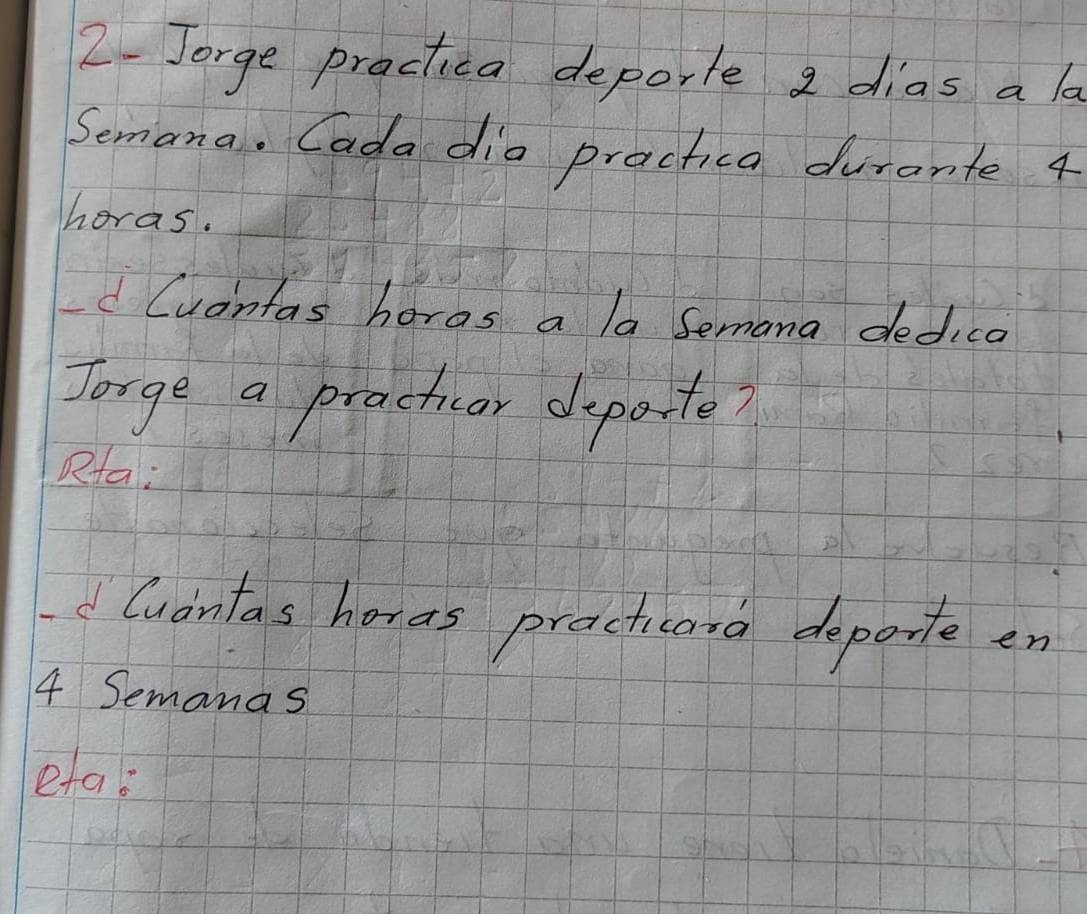 2- Jorge practica deporte 2 dias a la
Semana. Cada dia practica durante 4
horas.
-¿ Cuántas horas a la Semana dedica
Jorge a practicar deporte?
Rta:
-¿ Cuántas horas practicará deporte en
4 Semanas
Rta: